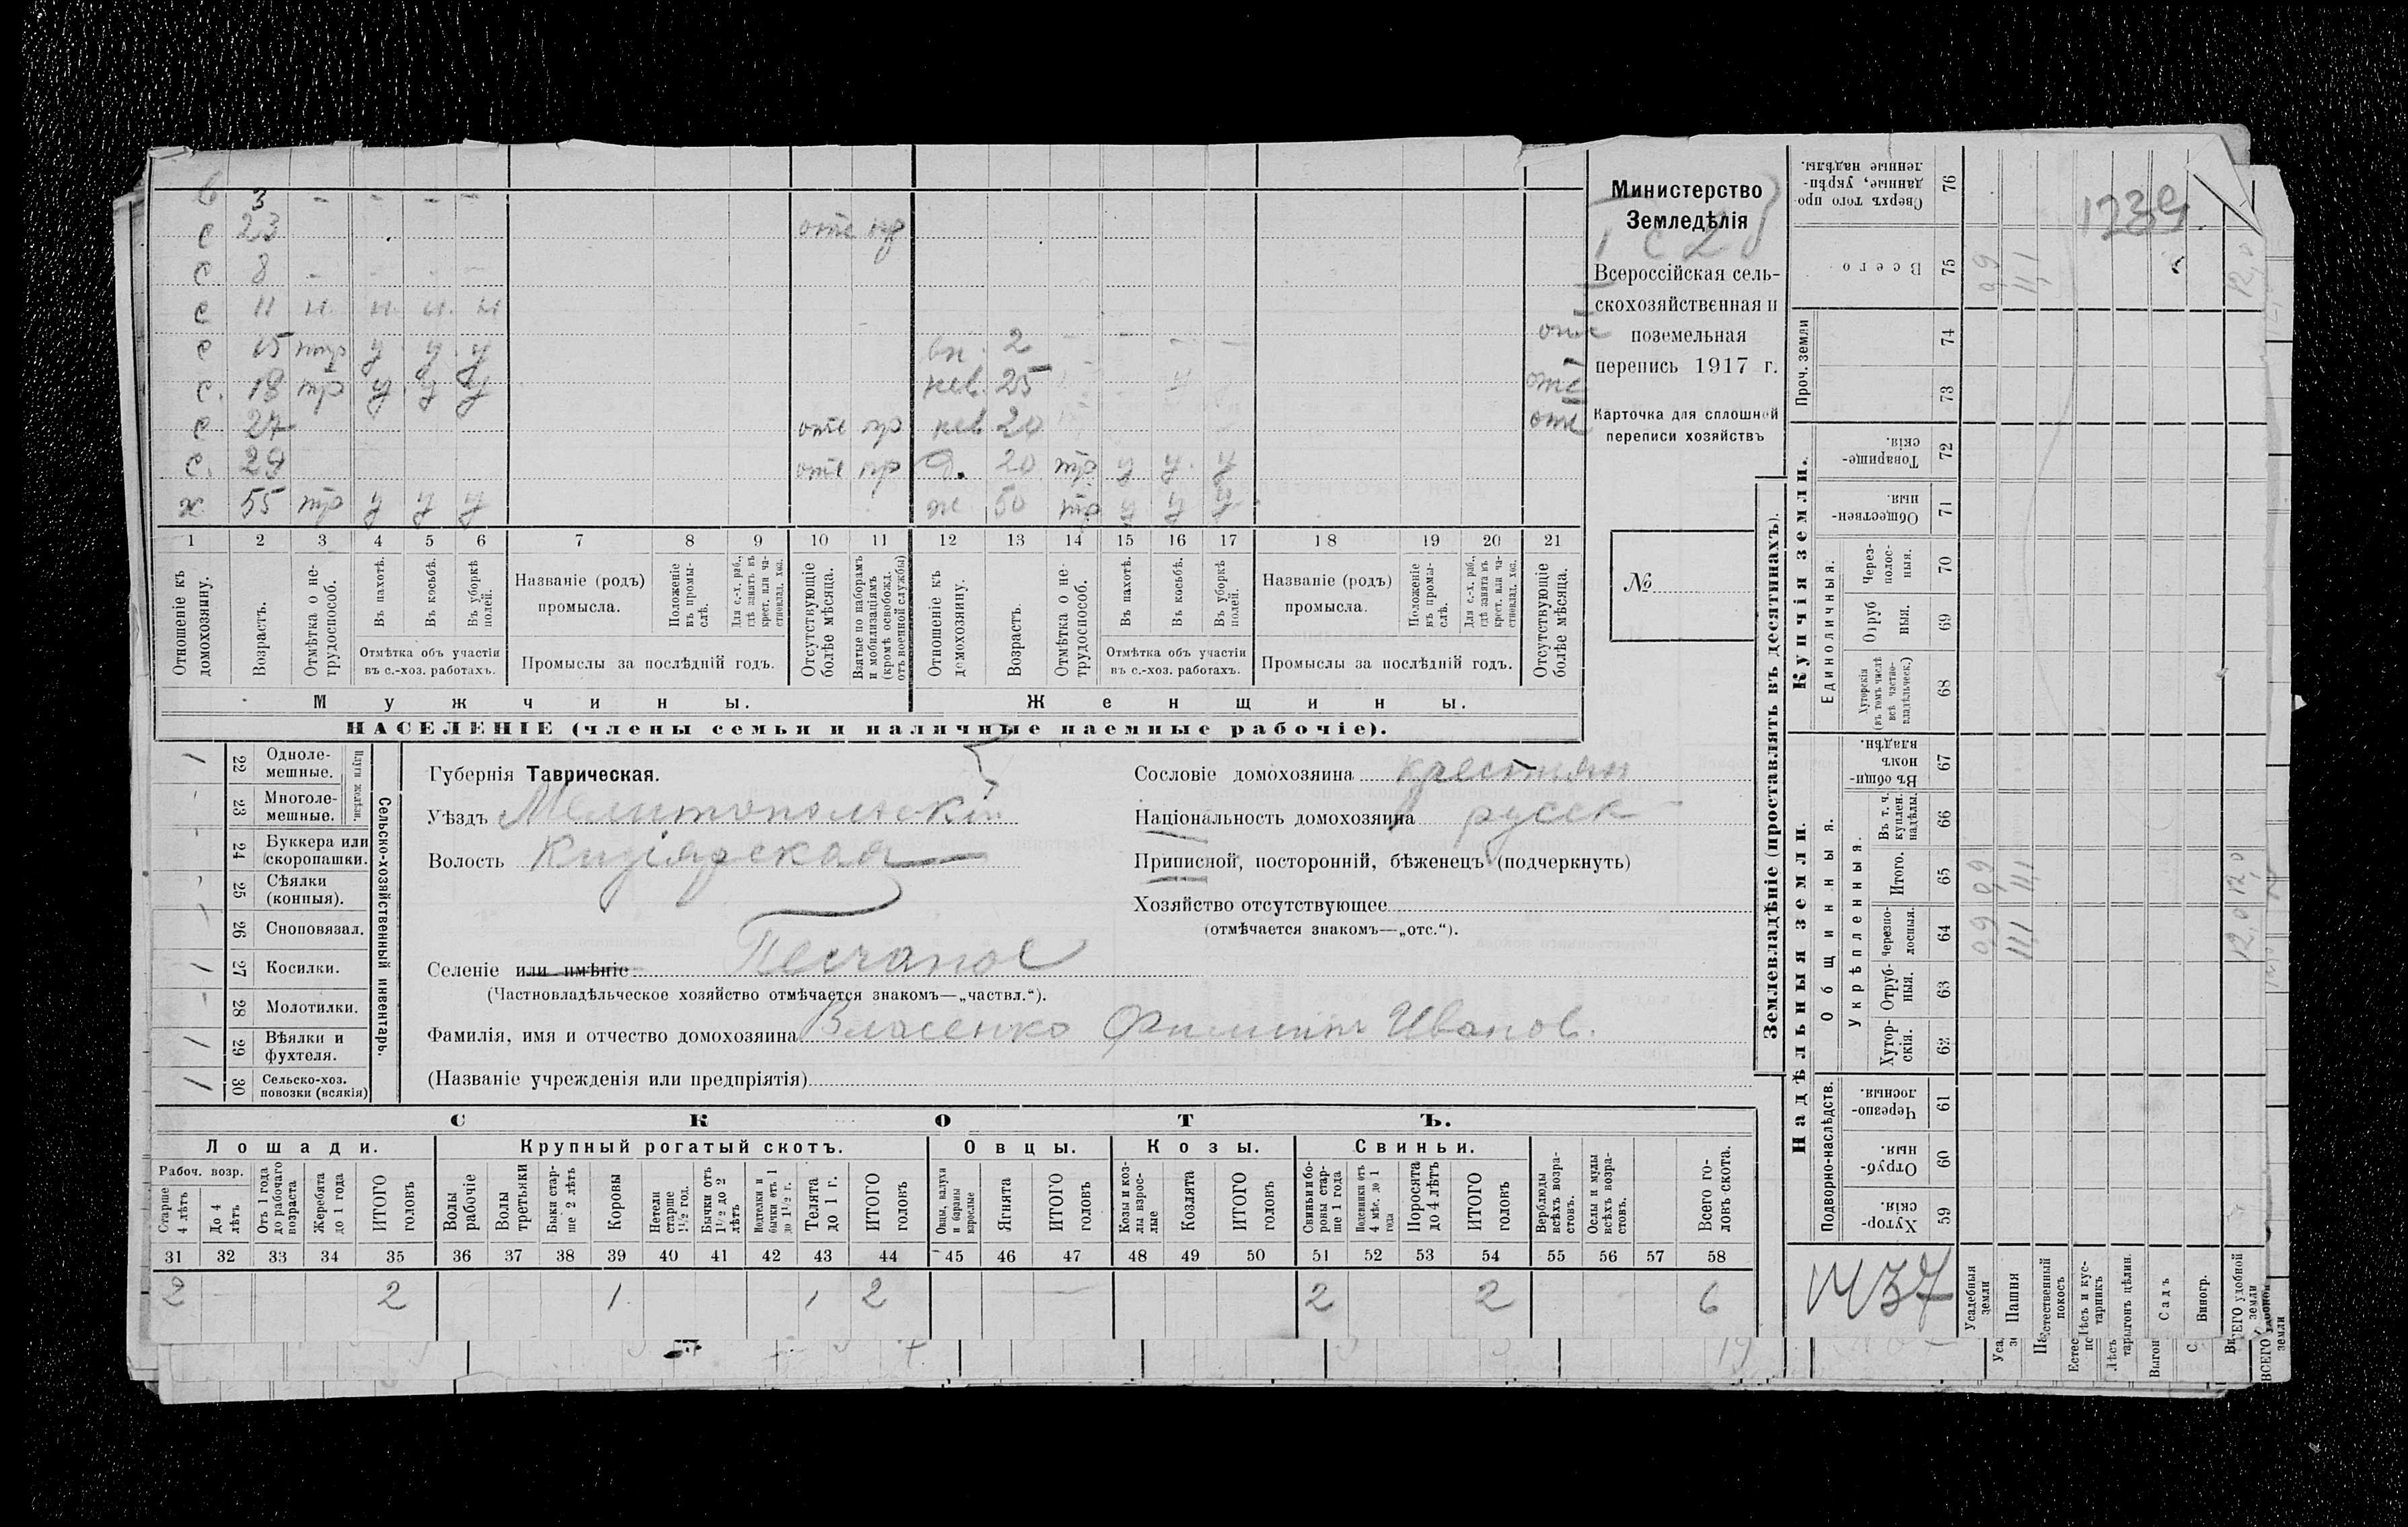 6 3 - - - -
с 23 отс пр
с 8 - - - -
с 11 н. н. н. н
с 15 тр у у у вн. 2 - - - - отс
с. 18 тр у у у нев. 25 отс
с 27 отс пр нев 20 отс
с. 29 отс пр д. 20 тр у у. у
х 55 тр у у у ж 50 тр у у у
1 2 3 4 5 6 7 8 9 10 11 12 13 14 15 16 17 18 19 20 21
Отношеніе къ домохозяину.
Возрастъ.
Отмѣтка о не-трудоспособ.
Въ пахотѣ.
Въ косьбѣ.
Въ уборкѣ полей.
Отмѣтка объ участіи въ с.-хоз. работахъ.
Названіе (родъ) промысла.
Положеніе въ промы-слѣ.
Для с.-х. раб., гдѣ занятъ въ крест. или ча-стновлад. хоз.
Промыслы за послѣдній годъ.
Отсутствующіе болѣе мѣсяца.
Взятые по наборамъ и мобилизаціямъ (кромѣ освобожд. отъ военной службы)
Отношеніе къ домохозяину.
Возрастъ.
Отмѣтка о не-трудоспособ.
Въ пахотѣ.
Въ косьбѣ.
Въ уборкѣ полей.
Отмѣтка объ участіи въ с.-хоз. работахъ.
Названіе (родъ) промысла.
Положеніе въ промы-слѣ.
Для с.-х. раб., гдѣ занята въ крест. или ча-стновлад. хоз.
Промыслы за послѣдній годъ.
Отсутствующіе болѣе мѣсяца.
Мужчины. Женщины.
НАСЕЛЕНІЕ (члены семьи и наличные наемные рабочіе).
Министерство
Земледѣлія
Всероссійская сель-
скохозяйственная и
поземельная
перепись 1917 г.
Карточка для сплошной
переписи хозяйствъ
№
Плуги желѣзн.
22 Одноле-мешные. 1
23 Многоле-мешные. -
24 Буккера или скоропашки. -
25 Сѣялки (конныя).
26 Сноповязал.
27 Косилки. 1
28 Молотилки. -
29 Вѣялки и фухтеля. 1
30 Сельско-хоз. повозки (всякія) 1
Сельско-хозяйственный инвентарь.
Губернія Таврическая.
Уѣздъ Мелитопольскій
Волость Кизіярская
Селеніе или имѣніе Песчаное
(Частновладѣльческое хозяйство отмѣчается знакомъ—„частвл.“).
Фамилія, имя и отчество домохозяина Власенко Филиппъ Иванов.
(Названіе учрежденія или предпріятія)
Сословіе домохозяина крестьян
Національность домохозяина русск
Приписной, посторонній, бѣженецъ (подчеркнуть)
Хозяйство отсутствующее
(отмѣчается знакомъ—„отс.“).
СКОТЪ.
Лошади. Крупный рогатый скотъ. Овцы. Козы. Свиньи.
Рабоч. возр.
Старше 4 лѣтъ
До 4 лѣтъ
Отъ 1 года до рабочаго возраста
Жеребята до 1 года
ИТОГО головъ
Волы рабочіе
Волы третьяки
Быки стар-ше 2 лѣтъ
Коровы
Нетели старше 1½ год.
Бычки отъ 1½ до 2 лѣтъ
Нетельки и бычки отъ 1 до 1½ г.
Телята до 1 г.
ИТОГО головъ
Овцы, валухи и бараны взрослые
Ягнята
ИТОГО головъ
Козы и коз-лы взрос-лые
Козлята
ИТОГО головъ
Свиньи и бо-ровы стар-ше 1 года
Подсвинки отъ 4 мѣс. до 1 года
Поросята до 4 лѣтъ
ИТОГО головъ
Верблюды всѣхъ возра-стовъ.
Ослы и мулы всѣхъ возра-стовъ.
Всего го-ловъ скота.
31 32 33 34 35 36 37 38 39 40 41 42 43 44 45 46 47 48 49 50 51 52 53 54 55 56 57 58
2 2 1 1 2 2 2 6
Землевладѣніе (проставлять въ десятинахъ).
Сверхъ того про-данные, укрѣп-ленные надѣлы. 76
Всего 75 0,9 11,1 12,0
Проч. земли 74 73
Купчія земли.
Товарище-скія. 72
Обществен-ныя. 71
Единоличныя.
Через-полос-ныя. 70
Отруб ныя. 69
Хуторскія (въ томъ числѣ всѣ частно-владѣльческ.) 68
Надѣльныя земли.
Общинныя.
Въ общи-номъ владѣн. 67
Укрѣпленныя.
Въ т. ч. куплен. надѣлы. 66
Итого. 65 0,9 11,1 12,0
Черезпо-лосныя. 64 0,9 11,1 12,0
Отруб-ныя. 63
Хутор-скія. 62
Подворно-наслѣдств.
Черезпо-лосныя. 61
Отруб-ныя. 60
Хутор-скія. 59
Усадебныя земли
Пашня
Естественный покосъ
Лѣсъ и кус-тарникъ
Садъ
Виногр.
ВСЕГО удобной земли
1239
1437
19